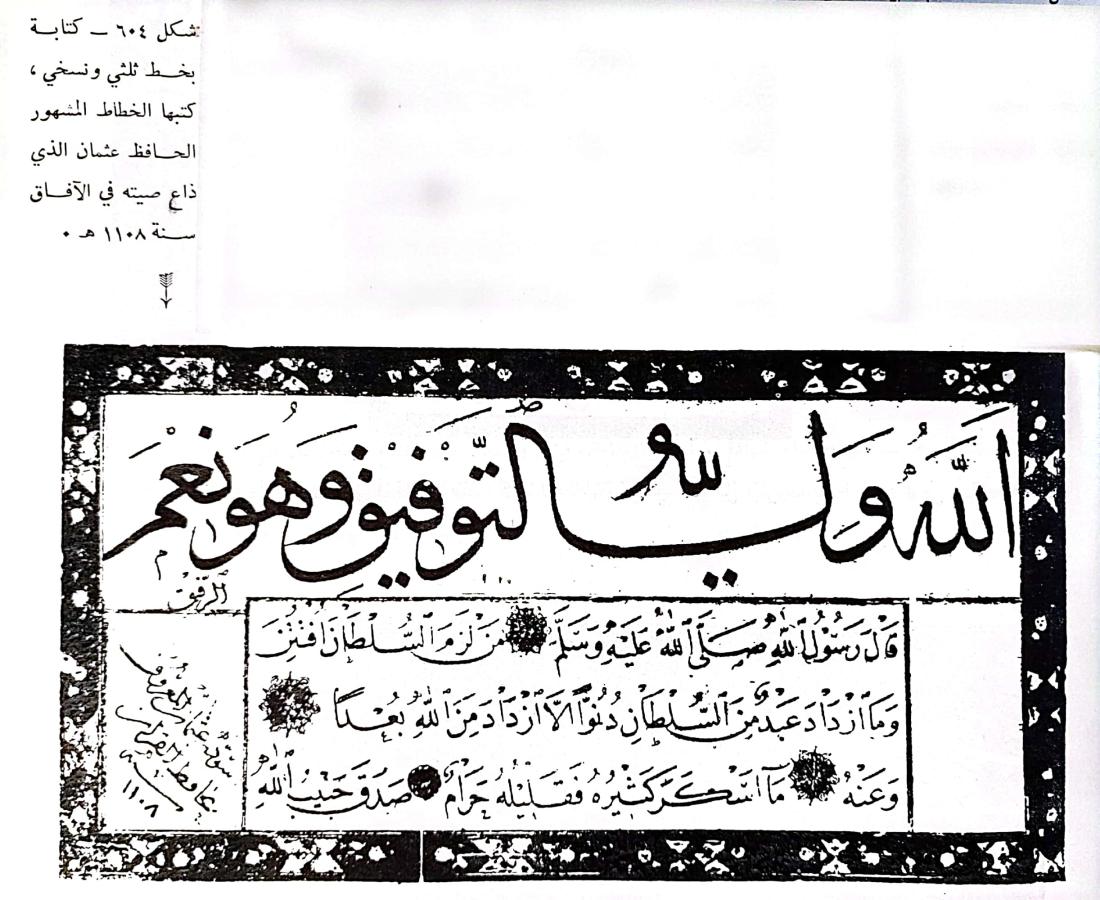 شكل ٦٠٤ – كتابة
بخط ثلثي ونسخي ،
كتبها الخطاط المشهور
الحافظ عثمان الذي
ذاع صيته في الآفاق
سنة ١١٠٨ هـ ٠
اَللّٰهُ وَلِيُّ التَّوْفِيقِ وَهُوَ نِعْمَ
الرَّفِيقُ
قَالَ رَسُولُ اللّٰهِ صَلَّى اللّٰهُ عَلَيْهِ وَسَلَّمَ مَنْ لَزِمَ السُّلْطَانَ افْتُتِنَ
وَمَا ازْدَادَ عَبْدٌ مِنَ السُّلْطَانِ دُنُوًّا اِلَّا ازْدَادَ مِنَ اللّٰهِ بُعْدًا
وَعَنْهُ مَا اَسْكَرَ كَثِيرُهُ فَقَلِيلُهُ حَرَامٌ صَدَقَ حَبِيبُ اللّٰهِ
سوّده عثمان المعروف
بحافظ القرآن
سنة
١١٠٨